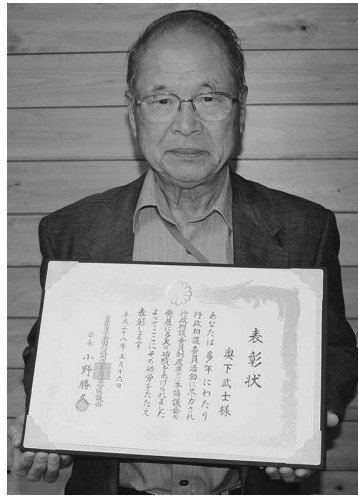 表彰状
奥下武士様
あなたは多年にわたり
行政相談委員活動に尽力され
行政相談委員制度並びに本協議会の
発展に多大の功績をあげられました
よってここにその功労をたたえ
表彰します
平成二十八年五月十六日
会長 小野勝久